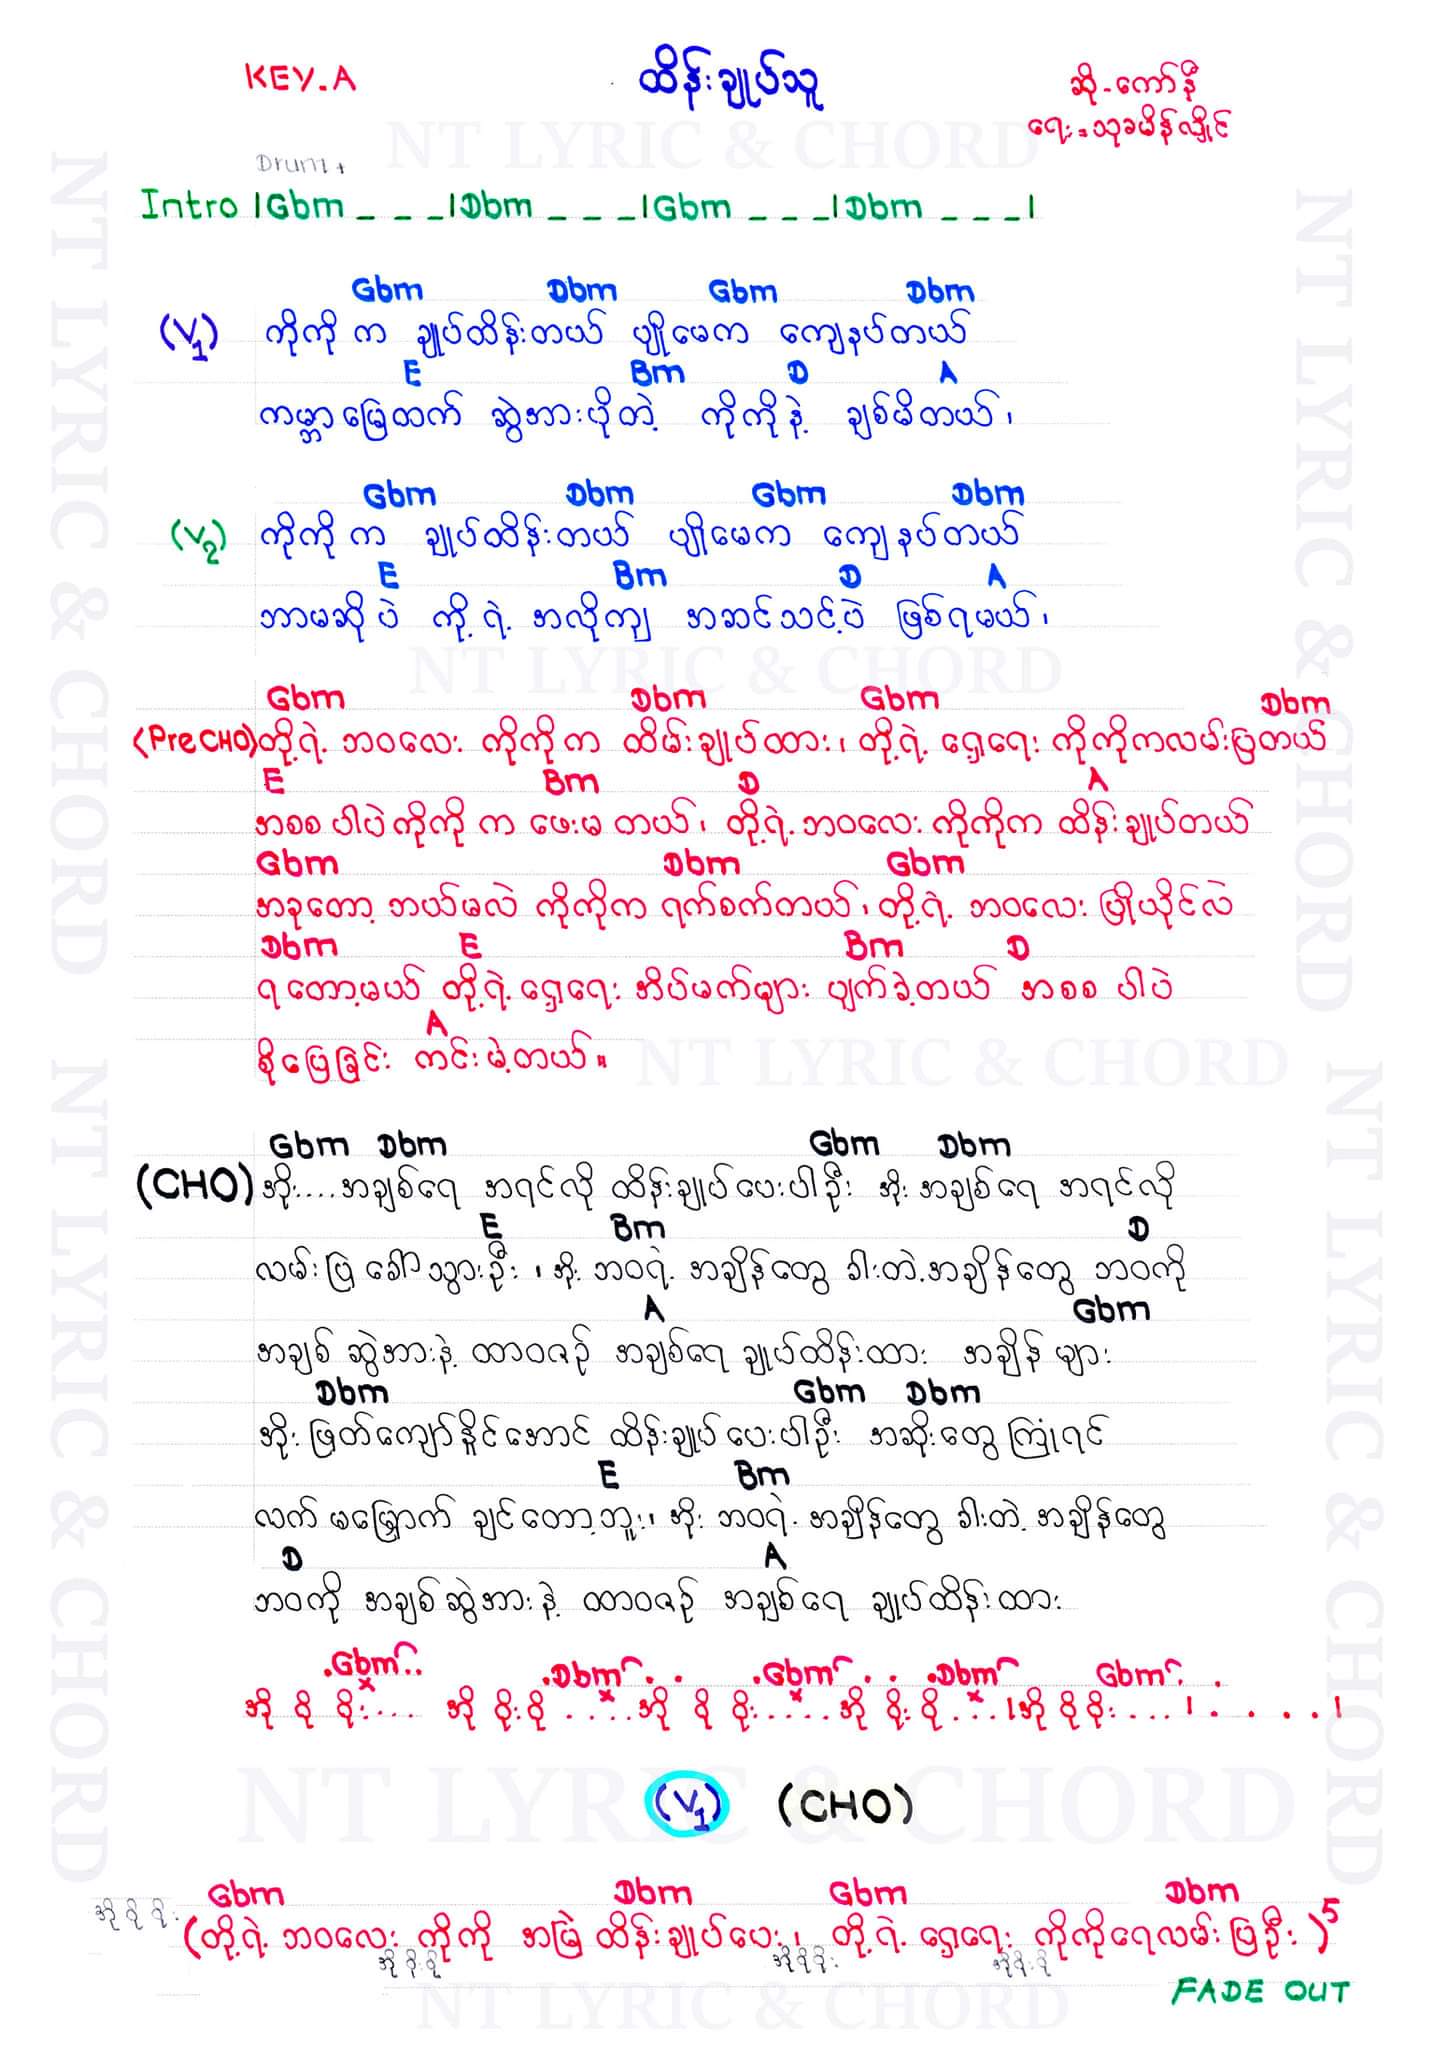 KEY.A
ထိန်းချုပ်သူ
ဆို-ကော်နီ
ရေး-သုခမိန်လှိုင်
NT LYRIC & CHORD
Drum+
Intro |Gbm _ _ _|Dbm _ _ _|Gbm _ _ _|Dbm _ _ _|
Gbm Dbm Gbm Dbm
(V1) ကိုကို က ချုပ်ထိန်းတယ် ပျိုမေက ကျေနပ်တယ်
E Bm D A
ကမ္ဘာမြေထက် ဆွဲအားပိုတဲ့ ကိုကိုနဲ့ ချစ်မိတယ်၊
Gbm Dbm Gbm Dbm
(V2) ကိုကို က ချုပ်ထိန်းတယ် ပျိုမေက ကျေနပ်တယ်
E Bm D A
ဘာမဆိုပဲ ကို့ ရဲ့ အလိုကျ အဆင်သင့်ပဲ ဖြစ်ရမယ်၊
NT LYRIC & CHORD
Gbm Dbm Gbm Dbm
(PreCHO) တို့ရဲ့ ဘဝလေး ကိုကိုက ထိမ်းချုပ်ထား၊ တို့ရဲ့ ရှေ့ရေး ကိုကိုကလမ်းပြတယ်
E Bm D A
အစစပါပဲကိုကို က ဖေးမ တယ်၊ တို့ရဲ့ ဘဝလေး ကိုကိုက ထိန်းချုပ်တယ်
Gbm Dbm Gbm
အခုတော့ ဘယ်မလဲ ကိုကိုက ရက်စက်တယ်၊ တို့ရဲ့ ဘဝလေး ပြိုယိုင်လဲ
Dbm E Bm D
ရတော့မယ် တို့ရဲ့ ရှေ့ရေး အိပ်မက်များ ပျက်ခဲ့တယ် အစစ ပါပဲ
A
စိုပြေခြင်း ကင်းမဲ့တယ်။
NT LYRIC & CHORD
Gbm Dbm Gbm Dbm
(CHO) အိုး....အချစ်ရေ အရင်လို ထိန်းချုပ်ပေးပါဦး အိုး အချစ်ရေ အရင်လို
E Bm D
လမ်းပြ ခေါ်သွားဦး ၊ အိုး ဘဝရဲ့ အချိန်တွေ ခါးတဲ့ အချိန်တွေ ဘဝကို
A Gbm
အချစ် ဆွဲအားနဲ့ ထာဝစဉ် အချစ်ရေ ချုပ်ထိန်းထား အချိန် များ
Dbm Gbm Dbm
အိုး ဖြတ်ကျော်နိုင်အောင် ထိန်းချုပ်ပေးပါဦး အဆိုးတွေ ကြုံရင်
E Bm
လက် မမြှောက် ချင်တော့ဘူး၊ အိုး ဘဝရဲ့ အချိန်တွေ ခါးတဲ့ အချိန်တွေ
D A
ဘဝကို အချစ်ဆွဲအားနဲ့ ထာဝစဉ် အချစ်ရေ ချုပ်ထိန်းထား
.Gbm.. .Dbm.. .Gbm.. .Dbm Gbm..
အို ဝို ဝိုး.... အို ဝိုး ဝို ....အို ဝို ဝိုး....အို ဝိုး ဝို ...|အို ဝို ဝိုး ...|. . . .|
NT LYRIC & CHORD
(V1) (CHO)
Gbm Dbm Gbm Dbm
အို ဝို ဝိုး
(တို့ရဲ့ ဘဝလေး ကိုကို အမြဲ ထိန်းချုပ်ပေး၊ တို့ရဲ့ ရှေ့ရေး ကိုကိုရေလမ်းပြဦး)5
အို ဝိုး ဝို အို ဝို ဝိုး အို ဝိုး ဝို
FADE OUT
NT LYRIC & CHORD
NT LYRIC & CHORD
NT LYRIC & CHORD
NT LYRIC & CHORD
NT LYRIC & CHORD